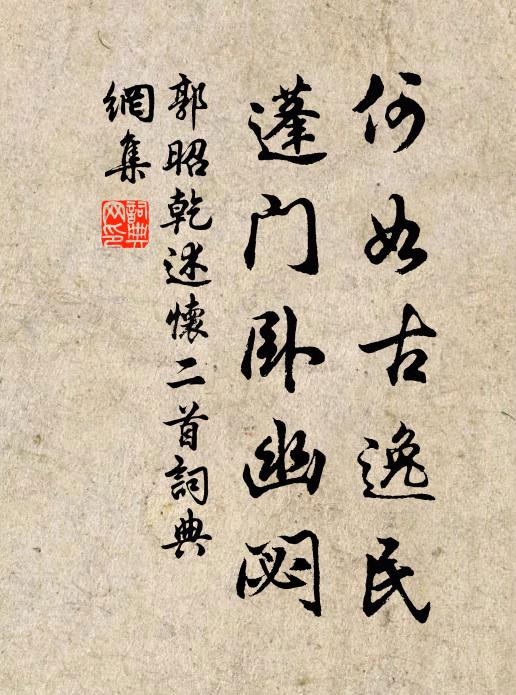 何如古逸民
蓬门卧幽閟
郭昭乾述懷二首詞典
網集
詞典網印